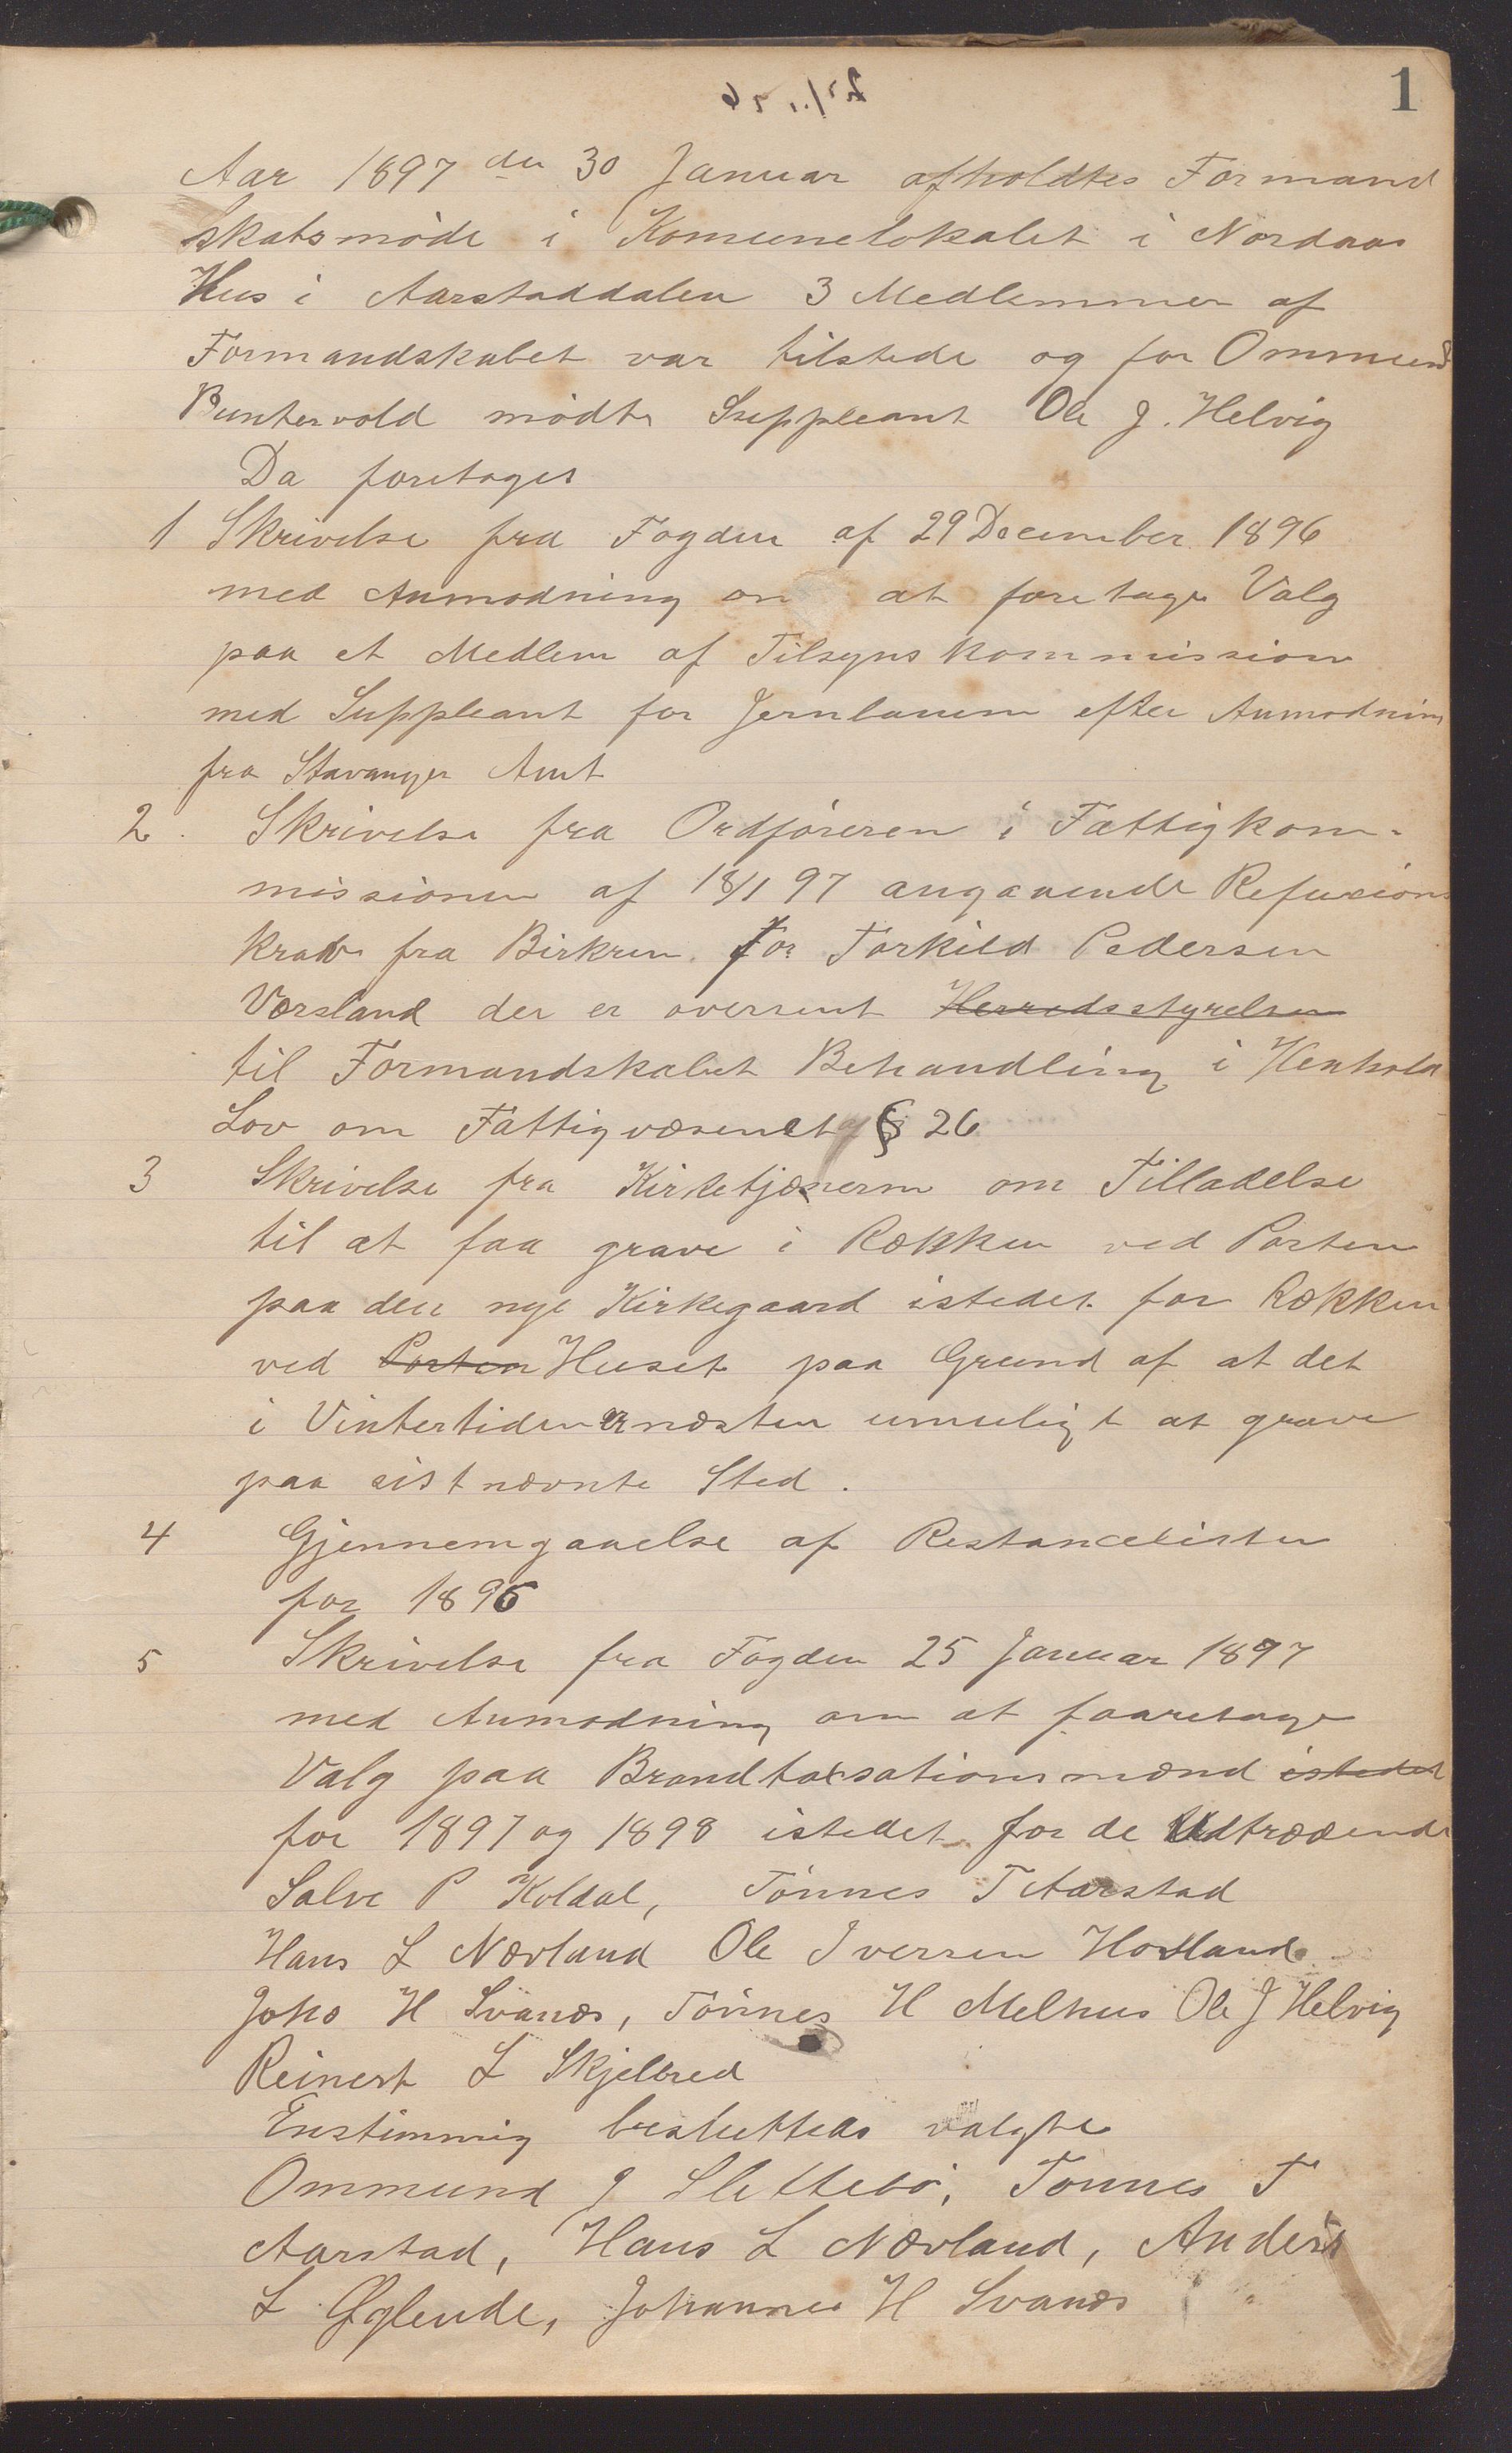 1
Aar 1897 den 30 Januar afholdtes Formand
skabsmöde i Komunelokalet i Nordaas
Hus i Aarstaddalen 3 Medlemmer af
Formandskabet var tilstede og for Ommund
Buntervold mödte Suppleant Ole J. Helvig
Da foretoges
1 Skrivelse fra Fogden af 29 December 1896
med Anmodning om at foretage Valg
paa et Medlem af Tilsynskommission
med Suppleant for Jernbanen efter Anmodning
fra Stavanger Amt
2. Skrivelse fra Ordföreren i Fattigkom-
missionen af 18/1 97 angaaende Refusions
krav fra Birkrem for Torkild Pedersen
Vorsland der er oversent Herredsstyrelsen
til Formandskabet Behandling i Henhold
Lov om Fattigvæsenet § 26
3 Skrivelse fra Kirketjeneren om Tilladelse
til at faa grave i Rækken ved Porten
paa den nye Kirkegaard istedet for Rækken
ved Porten Huset paa Grund af at det
i Vintertiden er næsten umuligt at grave
paa sistnævnte Sted.
4 Gjennemgaaelse af Restancelisten
for 1896
5 Skrivelse fra Fogden 25 Januar 1897
med Anmodning om at faaretage
Valg paa Brandtaxsationsmænd istedet
for 1897 og 1898 istedet for de Udtrædende
Salve P Koldal, Tönnes T Aarstad
Hans L Nævland Ole Iversen Hovland
Johs H Svanes, Tönnes H Melhus Ole J Helvig
Reinert L Skjelbred
Enstimmig besluttedes valgte
Ommund J Slettebö, Tonnes T
Aarstad, Hans L Nævland, Anders
L Øglende, Johannes H Svanes